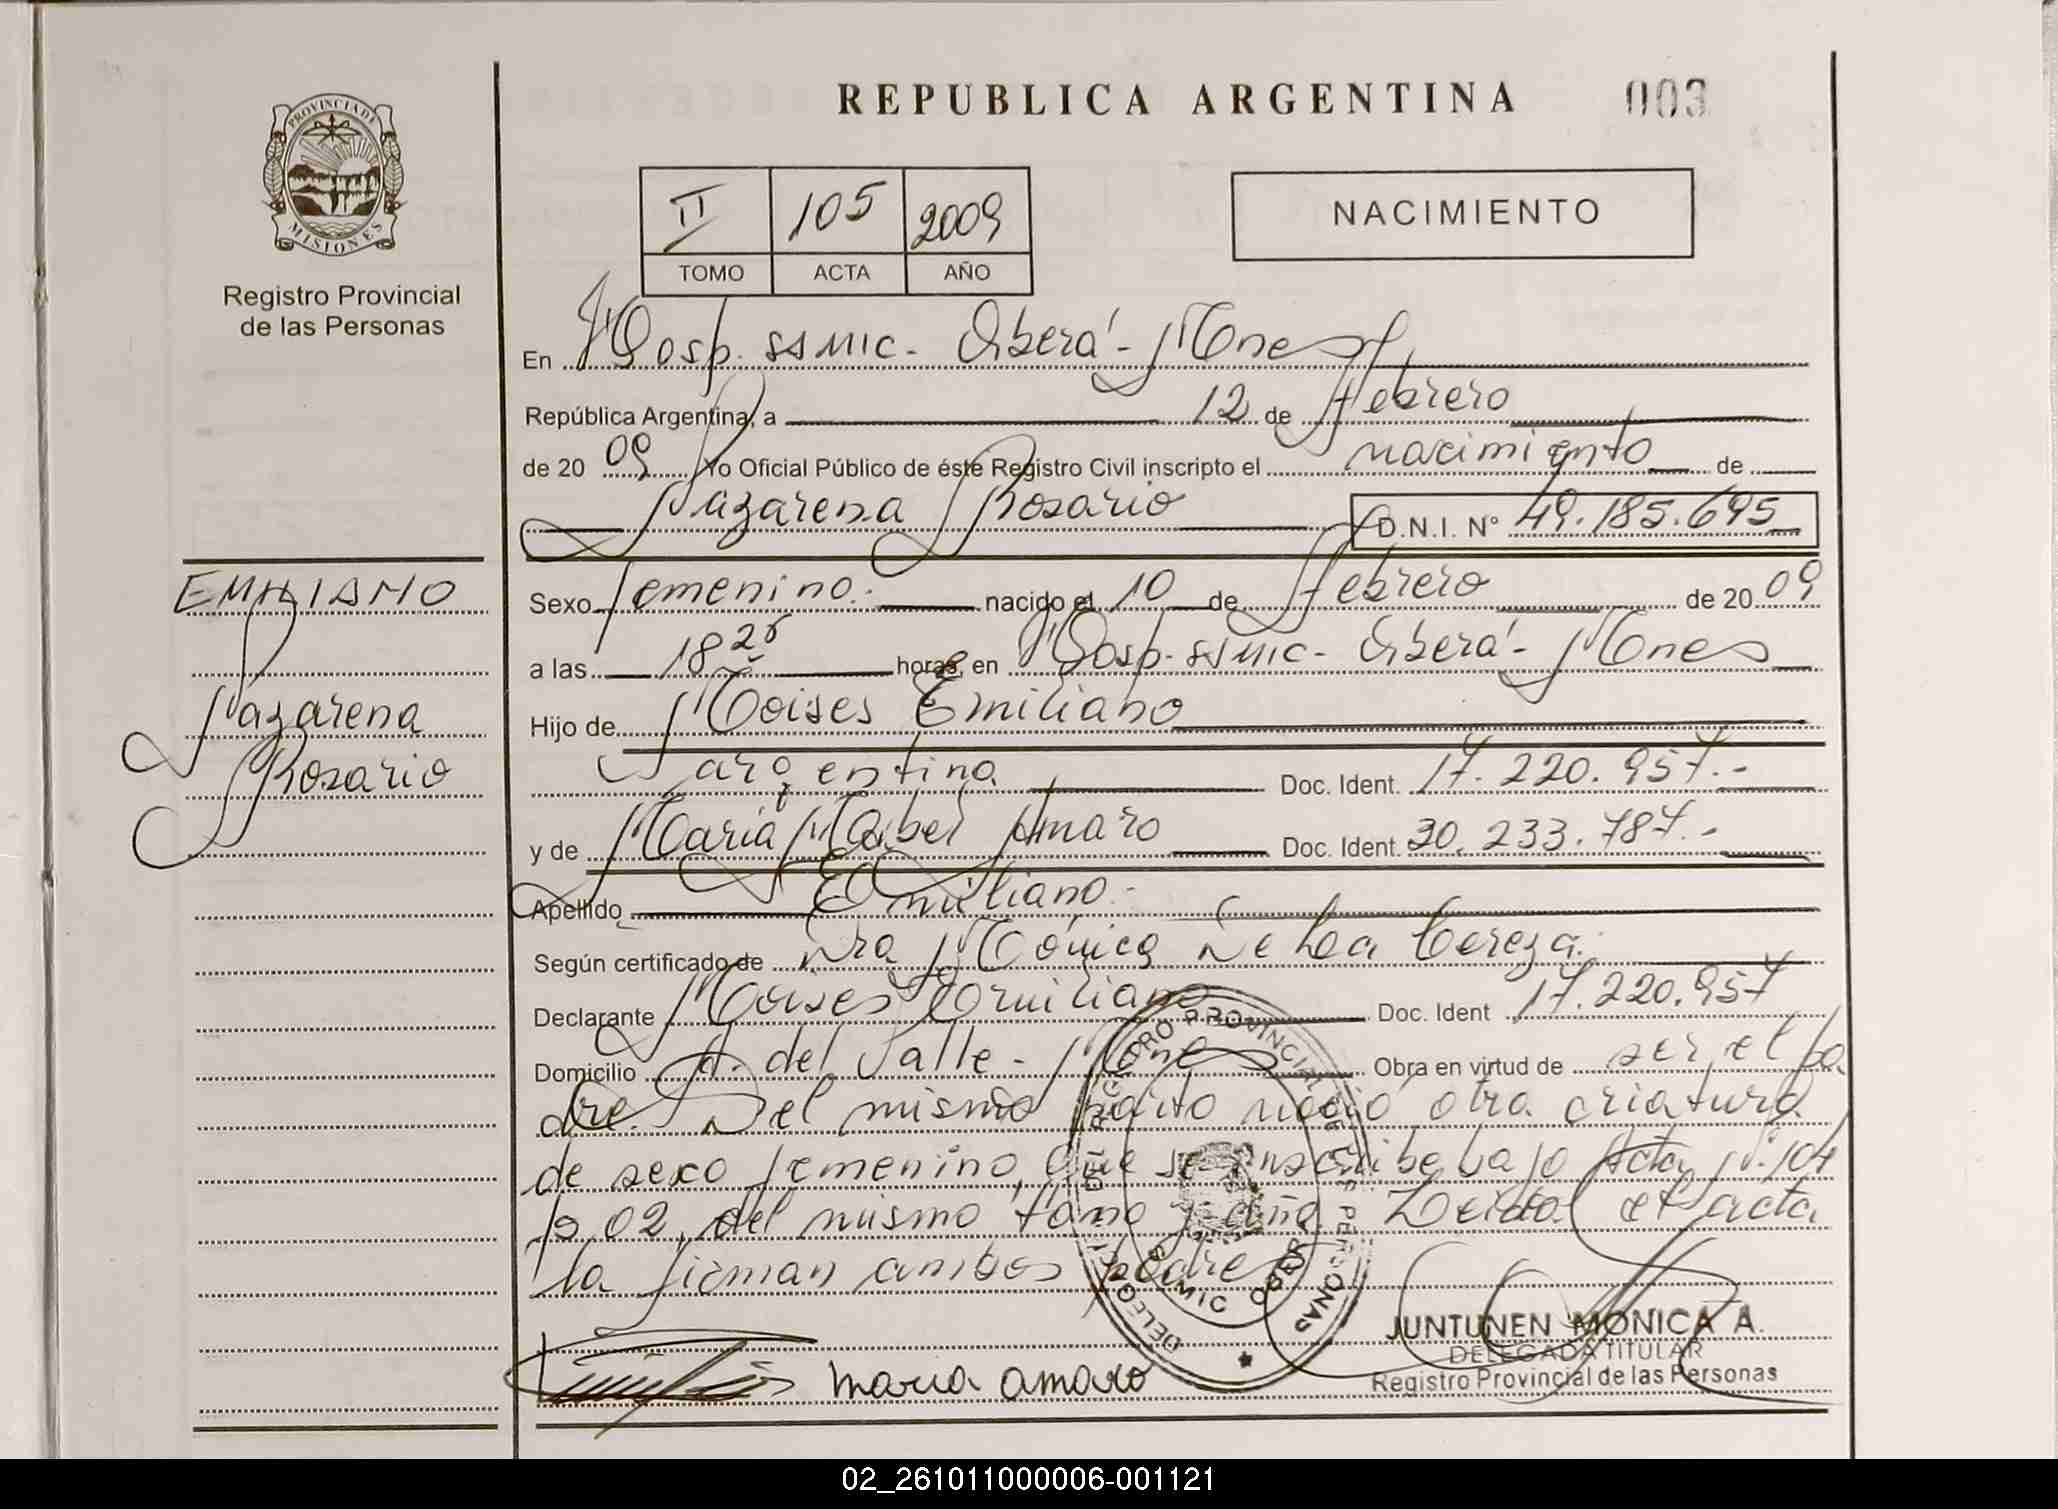 REPUBLICA ARGENTINA 003
PROVINCIA DE MISIONES
Registro Provincial
de las Personas
II 105 2009
TOMO ACTA AÑO
NACIMIENTO
En Hosp. SSMIC - Oberá - Mnes
República Argentina, a 12 de Febrero
de 20 09 Yo Oficial Público de éste Registro Civil inscripto el nacimiento de
Nazarena Rosario D.N.I. N° 49.185.695
EMILIANO
Nazarena
Rosario
Sexo femenino.- nacido el 10 de Febrero de 20 09
a las 18 horas, en Hosp. SSMIC - Oberá - Mnes
Hijo de Moises Emiliano
argentina Doc. Ident. 17.220.957.-
y de Maria Mabel Amaro Doc. Ident. 30.233.787.-
Apellido Emiliano.-
Según certificado de Dra Mónica De La Cereza.
Declarante Moises Emiliano Doc. Ident 17.220.957
Domicilio A. del Valle - Mnes Obra en virtud de ser el pa
dre. Del mismo parto nació otra criatura
de sexo femenino, que se inscribe bajo Acta N° 104
fo 02, del mismo tomo y año. Leida el acta
la firman ambos padres
DELEG. REGISTRO PROVINCIAL DE LAS PERSONAS
SSMIC OBERA
maria amaro
JUNTUNEN MONICA A.
DELEGADA TITULAR
Registro Provincial de las Personas
02_261011000006-001121